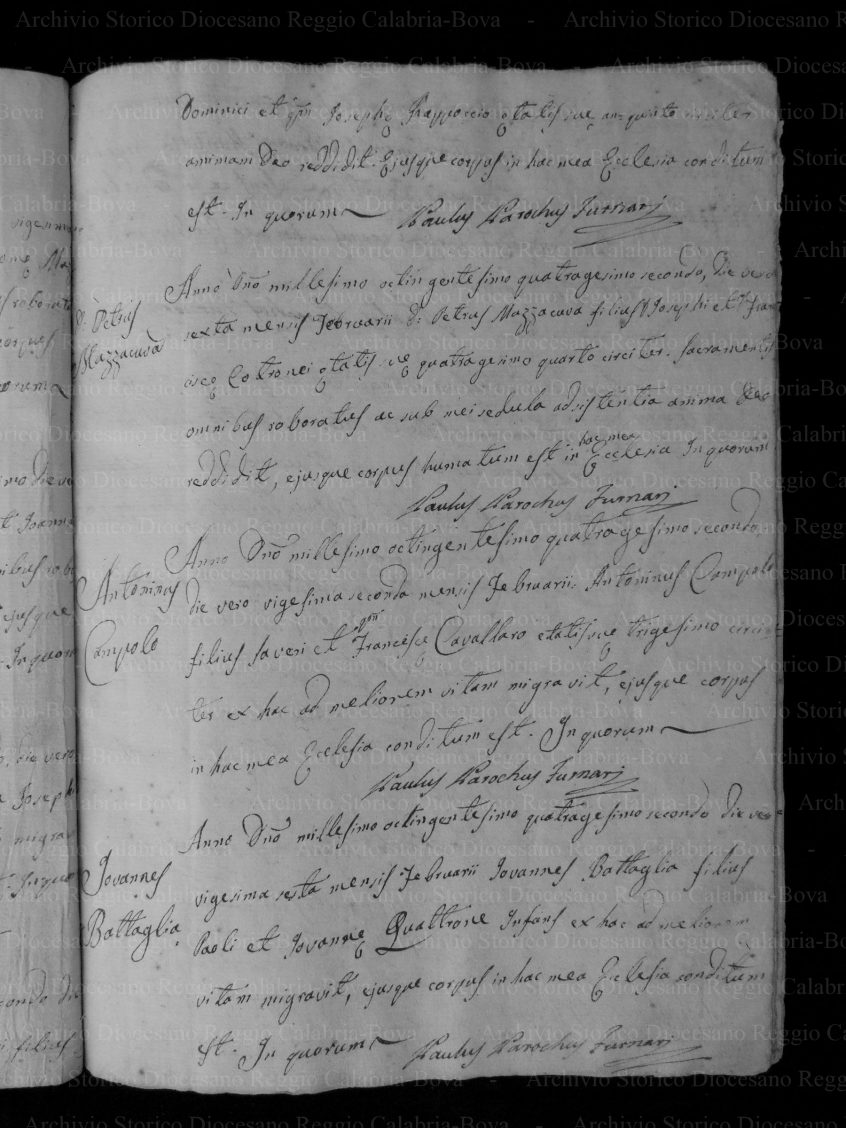 Dominici et qm Josephę Frappoccio ętatis suę an: quinto circiter
animam Deo reddidit. Ejusque corpus in hac mea Ecclesia conditum
est. In quorum
Paulus Parochus Furnari
D. Petrus
Mazzacuva
Anno Dno millesimo octingentesimo quatragesimo secondo, die vero
sexta mensis Februarii D. Petrus Mazzacuva filius Josephi et Fran
ciscę Cotronei ętatis suę quatragesimo quarto circiter. Sacramentis
omnibus roboratus ac sub mei sedula adsistentia anima Deo
reddidit, ejusque corpus humatum est in hac mea Ecclesia In quorum
Paulus Parochus Furnari
Antoninus
Campolo
Anno Dno millesimo octingentesimo quatragesimo secondo,
die vero vigesima secondo mensis Februarii. Antoninus Campolo
filius Saveri et qm Francescę Cavallaro etatis suę trigesimo circi
ter ex hac ad meliorem vitam migravit, ejusque corpus
in hac mea Ecclesia conditum est. In quorum
Paulus Parochus Furnari
Jovannes
Battaglia
Anno Dno millesimo octingentesimo quatragesimo secondo die vero
vigesima sesta mensis Februarii Jovannes Battaglia filius
Paoli et Jovannę Quattrone Infans ex hac ad meliorem
vitam migravit, ejusque corpus in hac mea Ecclesia conditum
est. In quorum
Paulus Parochus Furnari